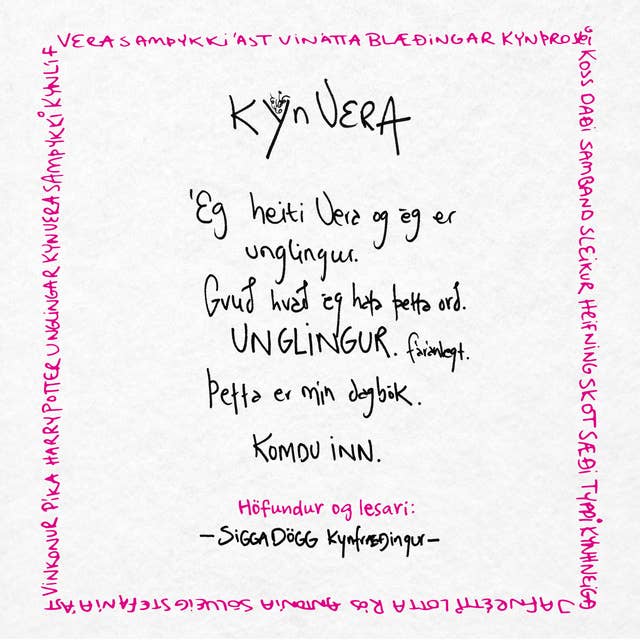 VERA SAMÞYKKI ÁST VINÁTTA BLÆÐINGAR KYNÞROSKI
KOSS DAÐI SAMBAND SLEIKUR HEIFNING SKOT SÆÐI TYPPI KYNHNEIGÐ
JAFNRÉTTI LOTTA RÓS ANTONIA SOLVEIG STEFANÍA ÁST
VINKONUR PÍKA HARRY POTTER UNGLINGAR KYNVERA SAMÞYKKI KYNLÍF
KYNVERA
Ég heiti Vera og ég er
unglingur.
Gvuð hvað ég hata þetta orð.
UNGLINGUR. fáránlegt.
Þetta er mín dagbók.
KOMDU INN.
Höfundur og lesari:
– SIGGA DÖGG kynfræðingur –